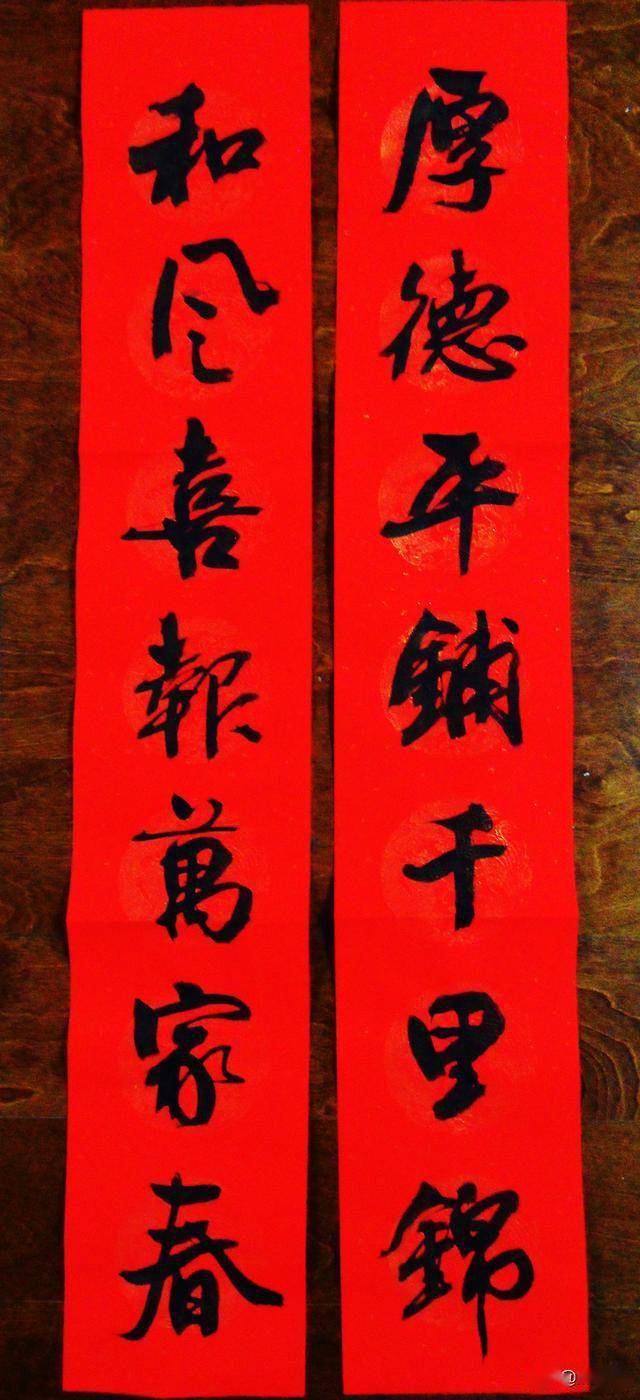 厚德平鋪千里錦
和风喜報萬家春